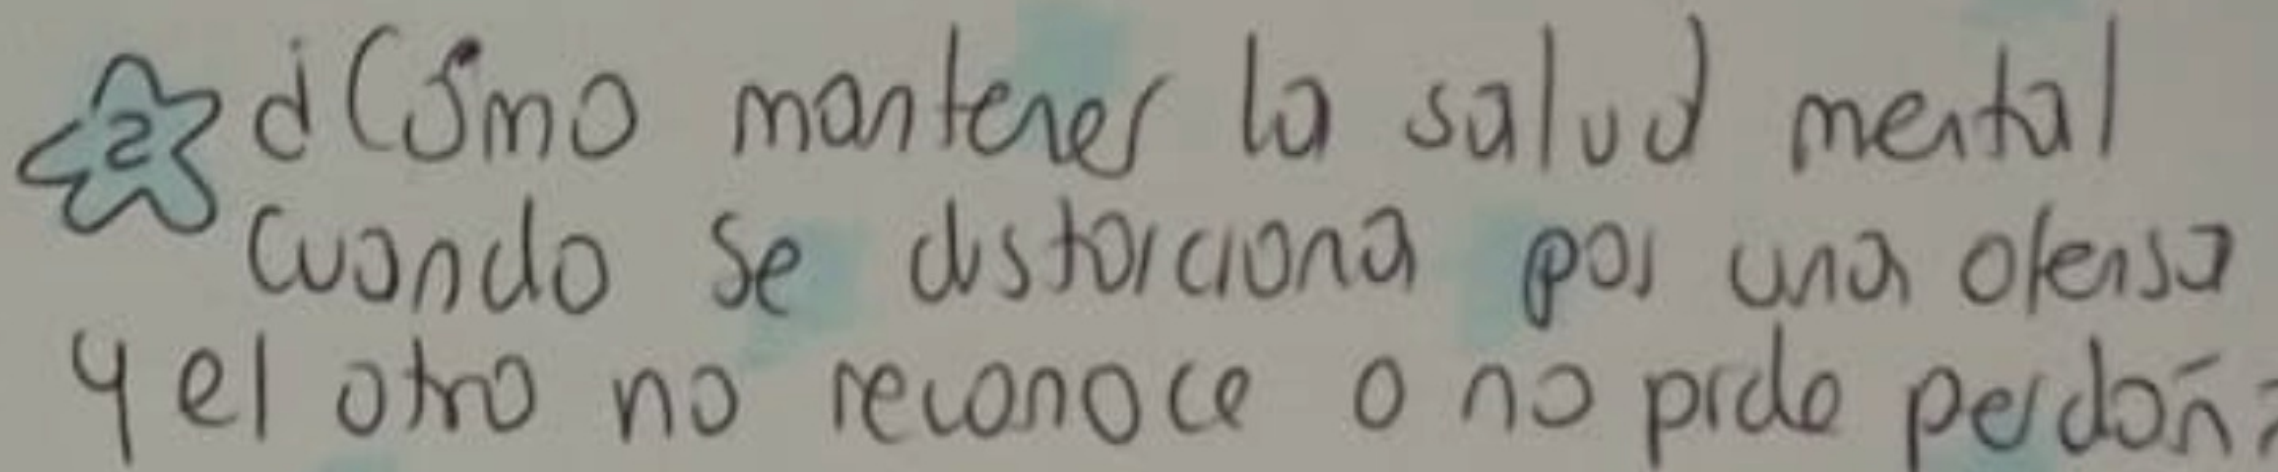 2 ¿Cómo mantener la salud mental
cuando se distorciona por una ofensa
y el otro no reconoce o no pide perdón?